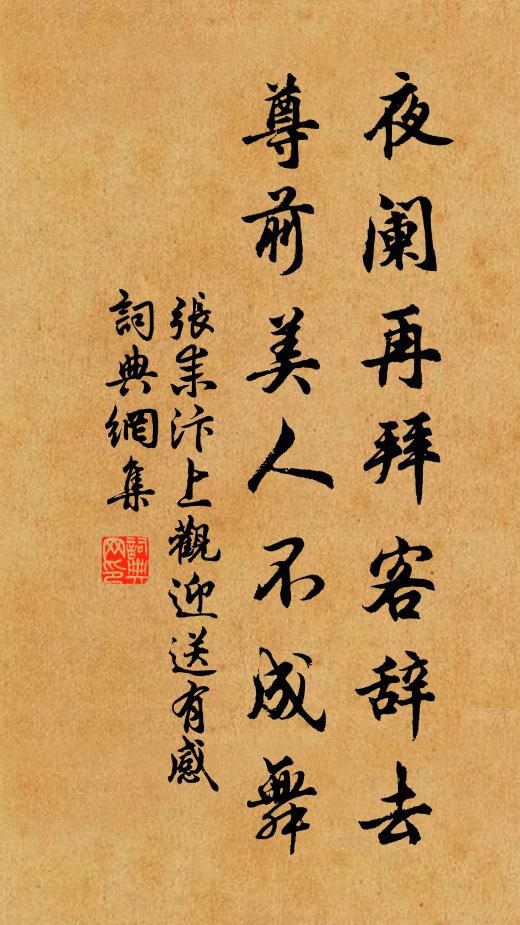 夜阑再拜客辞去
尊前美人不成舞
張耒汴上觀迎送有感
詞典網集
詞典网印